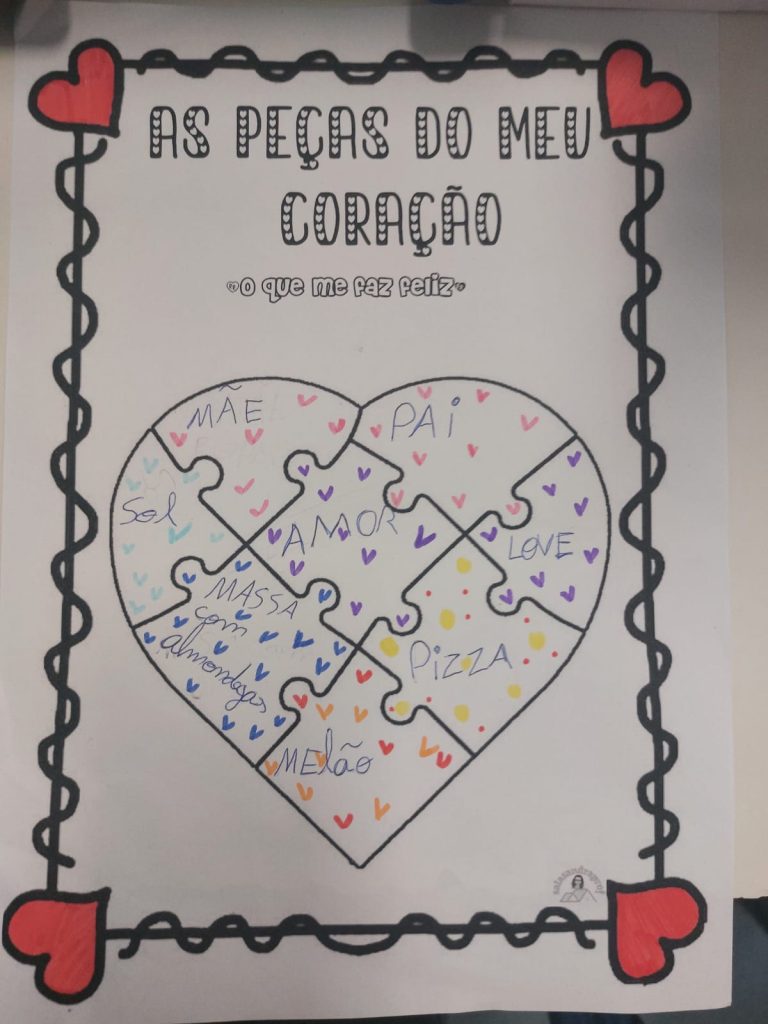 AS PEÇAS DO MEU
CORAÇÃO
O que me faz feliz
MÃE
PAi
Sol
AMOR
LOVE
MASSA
com
almondegas
PiZZA
MElão
salasandraprof